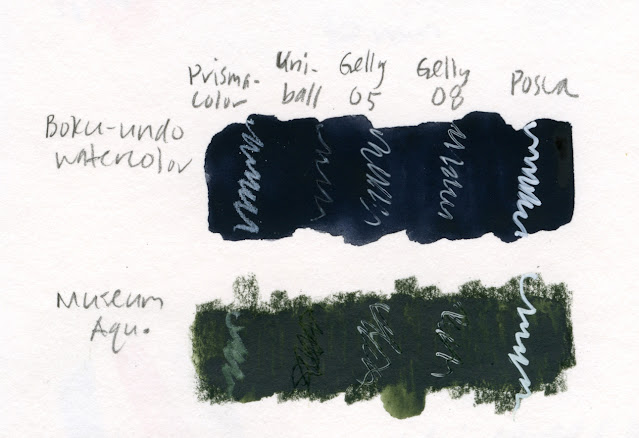 Prisma-
color
Uni-
ball
Gelly
05
Gelly
08
Posca
Boku-undo
watercolor
Museum
Aqu.